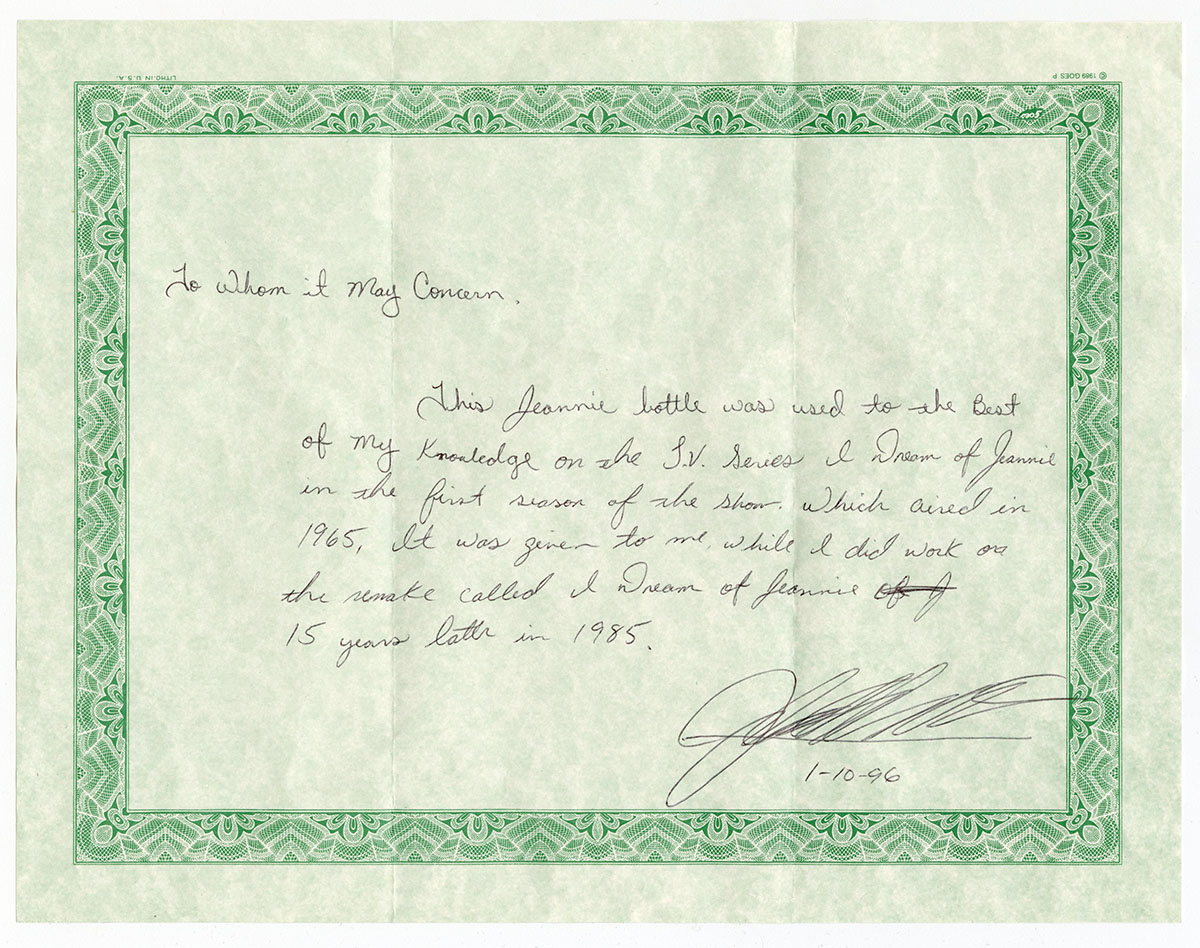 LITHO. IN U.S.A.
© 1989 GOES P
GOES
To Whom it May Concern,
This Jeannie bottle was used to the Best
of my Knowledge on the T.V. Series I Dream of Jeannie
in the first season of the show. Which aired in
1965. It was given to me, while I did work on
the remake called I Dream of Jeannie of J
15 years later in 1985.
1-10-96